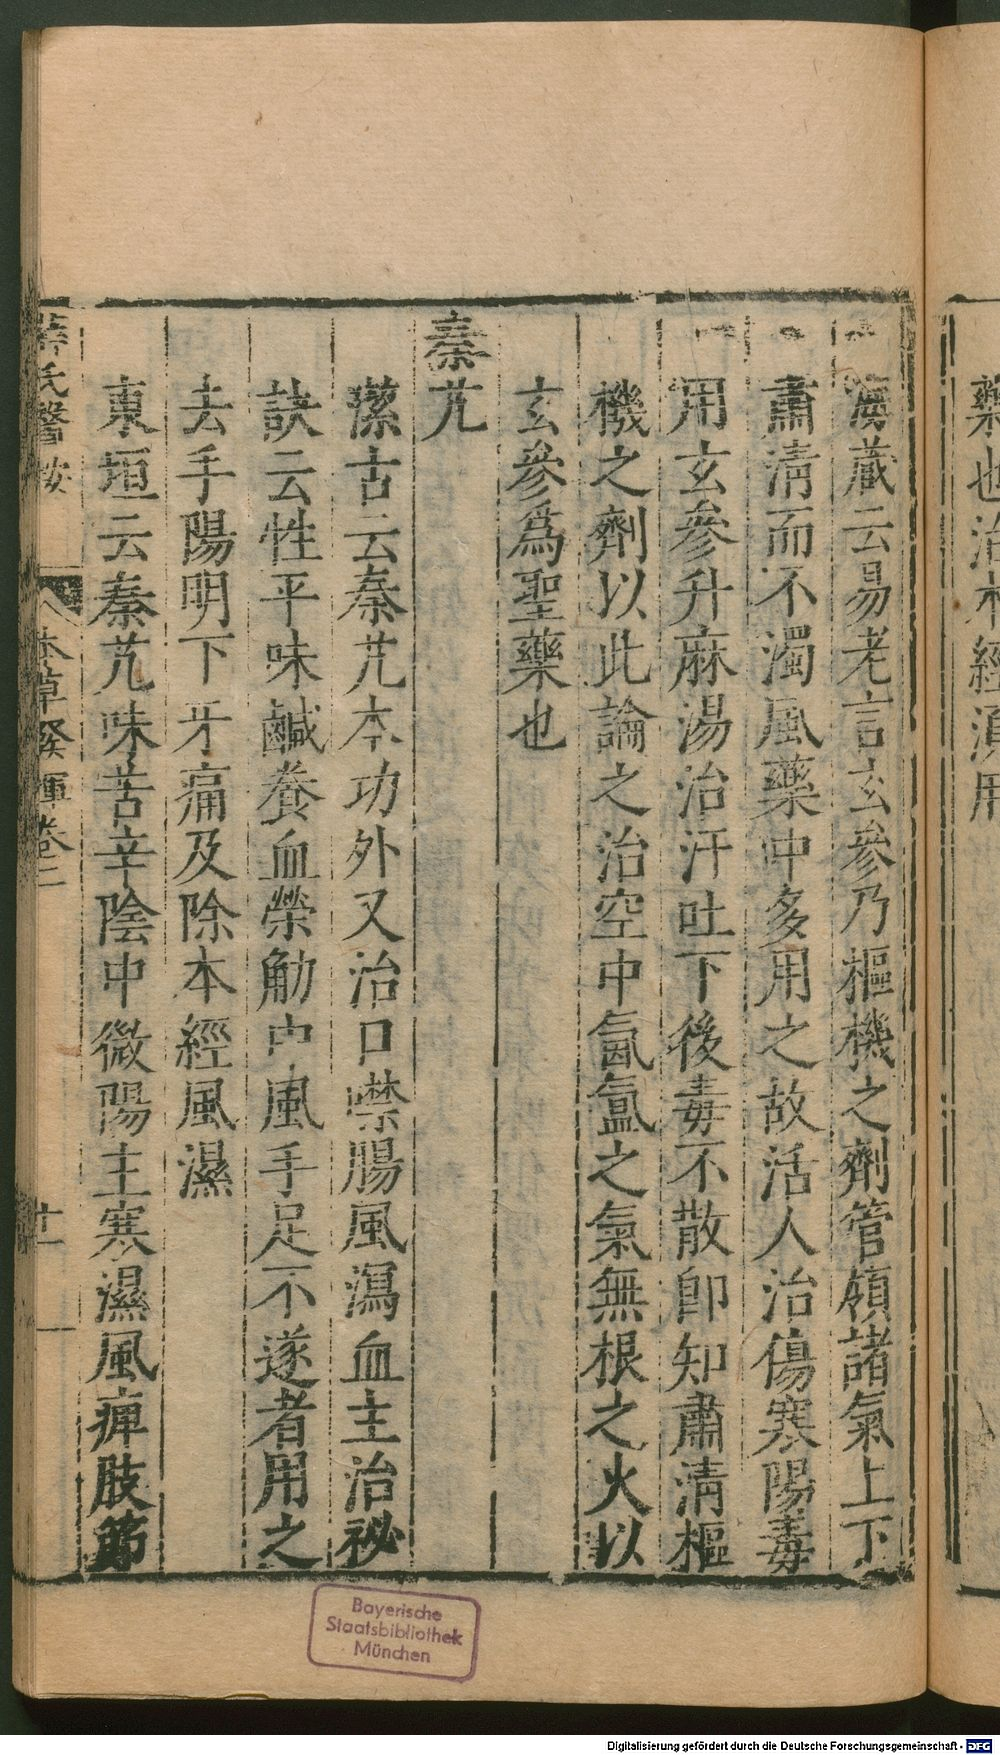 藥也治本經湏用
海藏云易老言玄參乃樞機之劑管領諸氣上下
肅清而不濁風藥中多用之故活人治傷寒陽毒
用玄參升麻湯治汗吐下後毒不散即知肅清樞
機之劑以此論之治空中氤氳之氣無根之火以
玄參爲聖藥也
秦艽
潔古云秦艽本功外又治口噤腸風瀉血主治祕
訣云性平味鹹養血榮觔中風手足不遂者用之
去手陽明下牙痛及除本經風濕
東垣云秦艽味苦辛陰中微陽主寒濕風痺肢節
薛氏醫按
本草發揮卷二
廿一
Bayerische
Staatsbibliothek
München
Digitalisierung gefördert durch die Deutsche Forschungsgemeinschaft - DFG